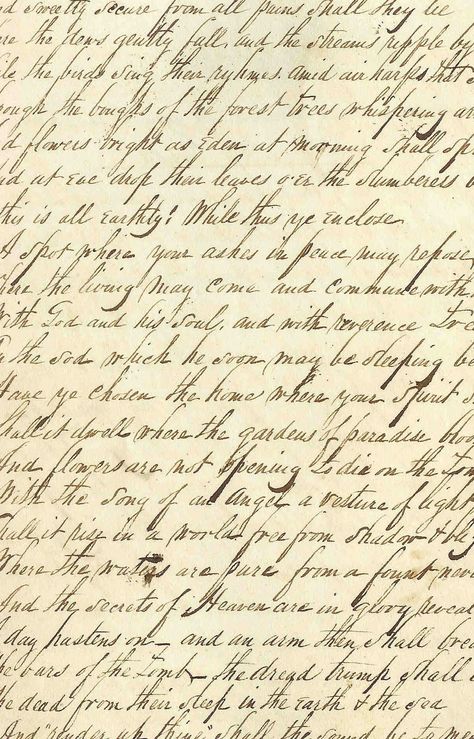 d sweetly secure from all pains shall they lie
re the dews gently fall, and the streams ripple by
ile the birds sing their rhymes amid air harps that
rough the boughs of the forest trees whispering are
d flowers bright as Eden at morning shall sp
nd at Eve drop their leaves o'er the slumberers
this is all Earthly! While thus ye enclose
A spot where your ashes in peace may repose
here the living may come and commune with
With God and his soul, and with reverence
the sod which he soon may be sleeping be
Have ye chosen the home where your Spirit s
Shall it dwell where the gardens of paradise blo
And flowers are not opening to die on the To
With the song of an angel a vesture of light
hall it rise in a world free from shadow &
Where the waters are pure from a fount neve
And the secrets of Heaven are in glory revea
day hastens on— and an arm then shall brea
he bars of the Tomb— the dread trump shall
he dead from their sleep in the Earth & the sea
And "render up thine" shall the sound be to